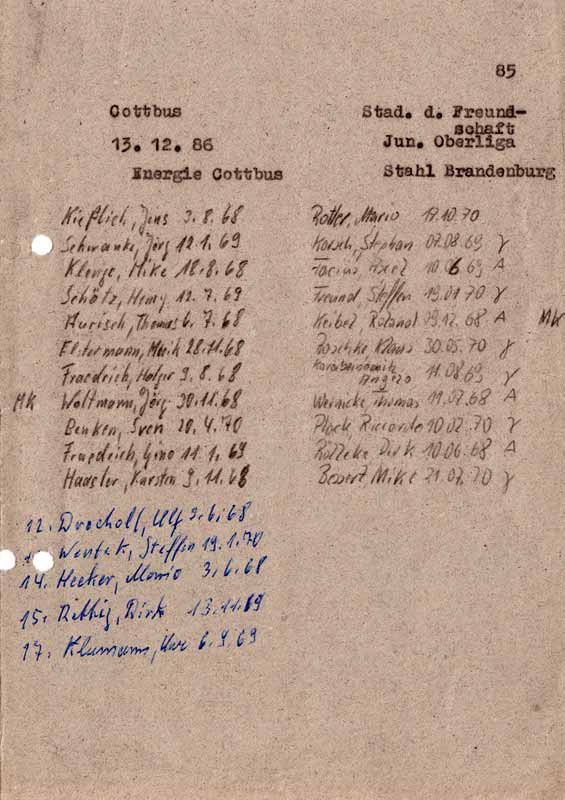 85
Cottbus
Stad. d. Freund-
schaft
13. 12. 86
Jun. Oberliga
Energie Cottbus
Stahl Brandenburg
Kießlich, Jens 3.8.68
Schwanke, Jörg 12.1.69
Klenge, Mike 18.8.68
Schötz, Henry 12.7.69
Aurisch, Thomas 6.7.68
Elstermann, Maik 28.11.68
Fraedrich, Holger 9.8.68
MK Woltmann, Jörg 30.11.68
Benken, Sven 20.4.70
Friedrich, Gino 11.1.69
Haasler, Karsten 9.11.68
Rotter, Mario 17.10.70
Korsch, Stephan 07.08.69 γ
Axel 10.06.69 A
Freund, Steffen 19.01.70 γ
Keibel, Roland 19.12.68 A MK
Raschke Klaus 30.05.70 γ
11.08.69 γ
Wernicke, Thomas 11.07.68 A
Plock, Riccardo 10.02.70 γ
Dirk 10.06.68 A
Bessert Mike 21.02.70 γ
12. Ulf 2.6.68
Steffen 19.1.70
14. Hecker, Mario 3.6.68
15. Rettig, Dirk 13.11.69
17. 6.9.69